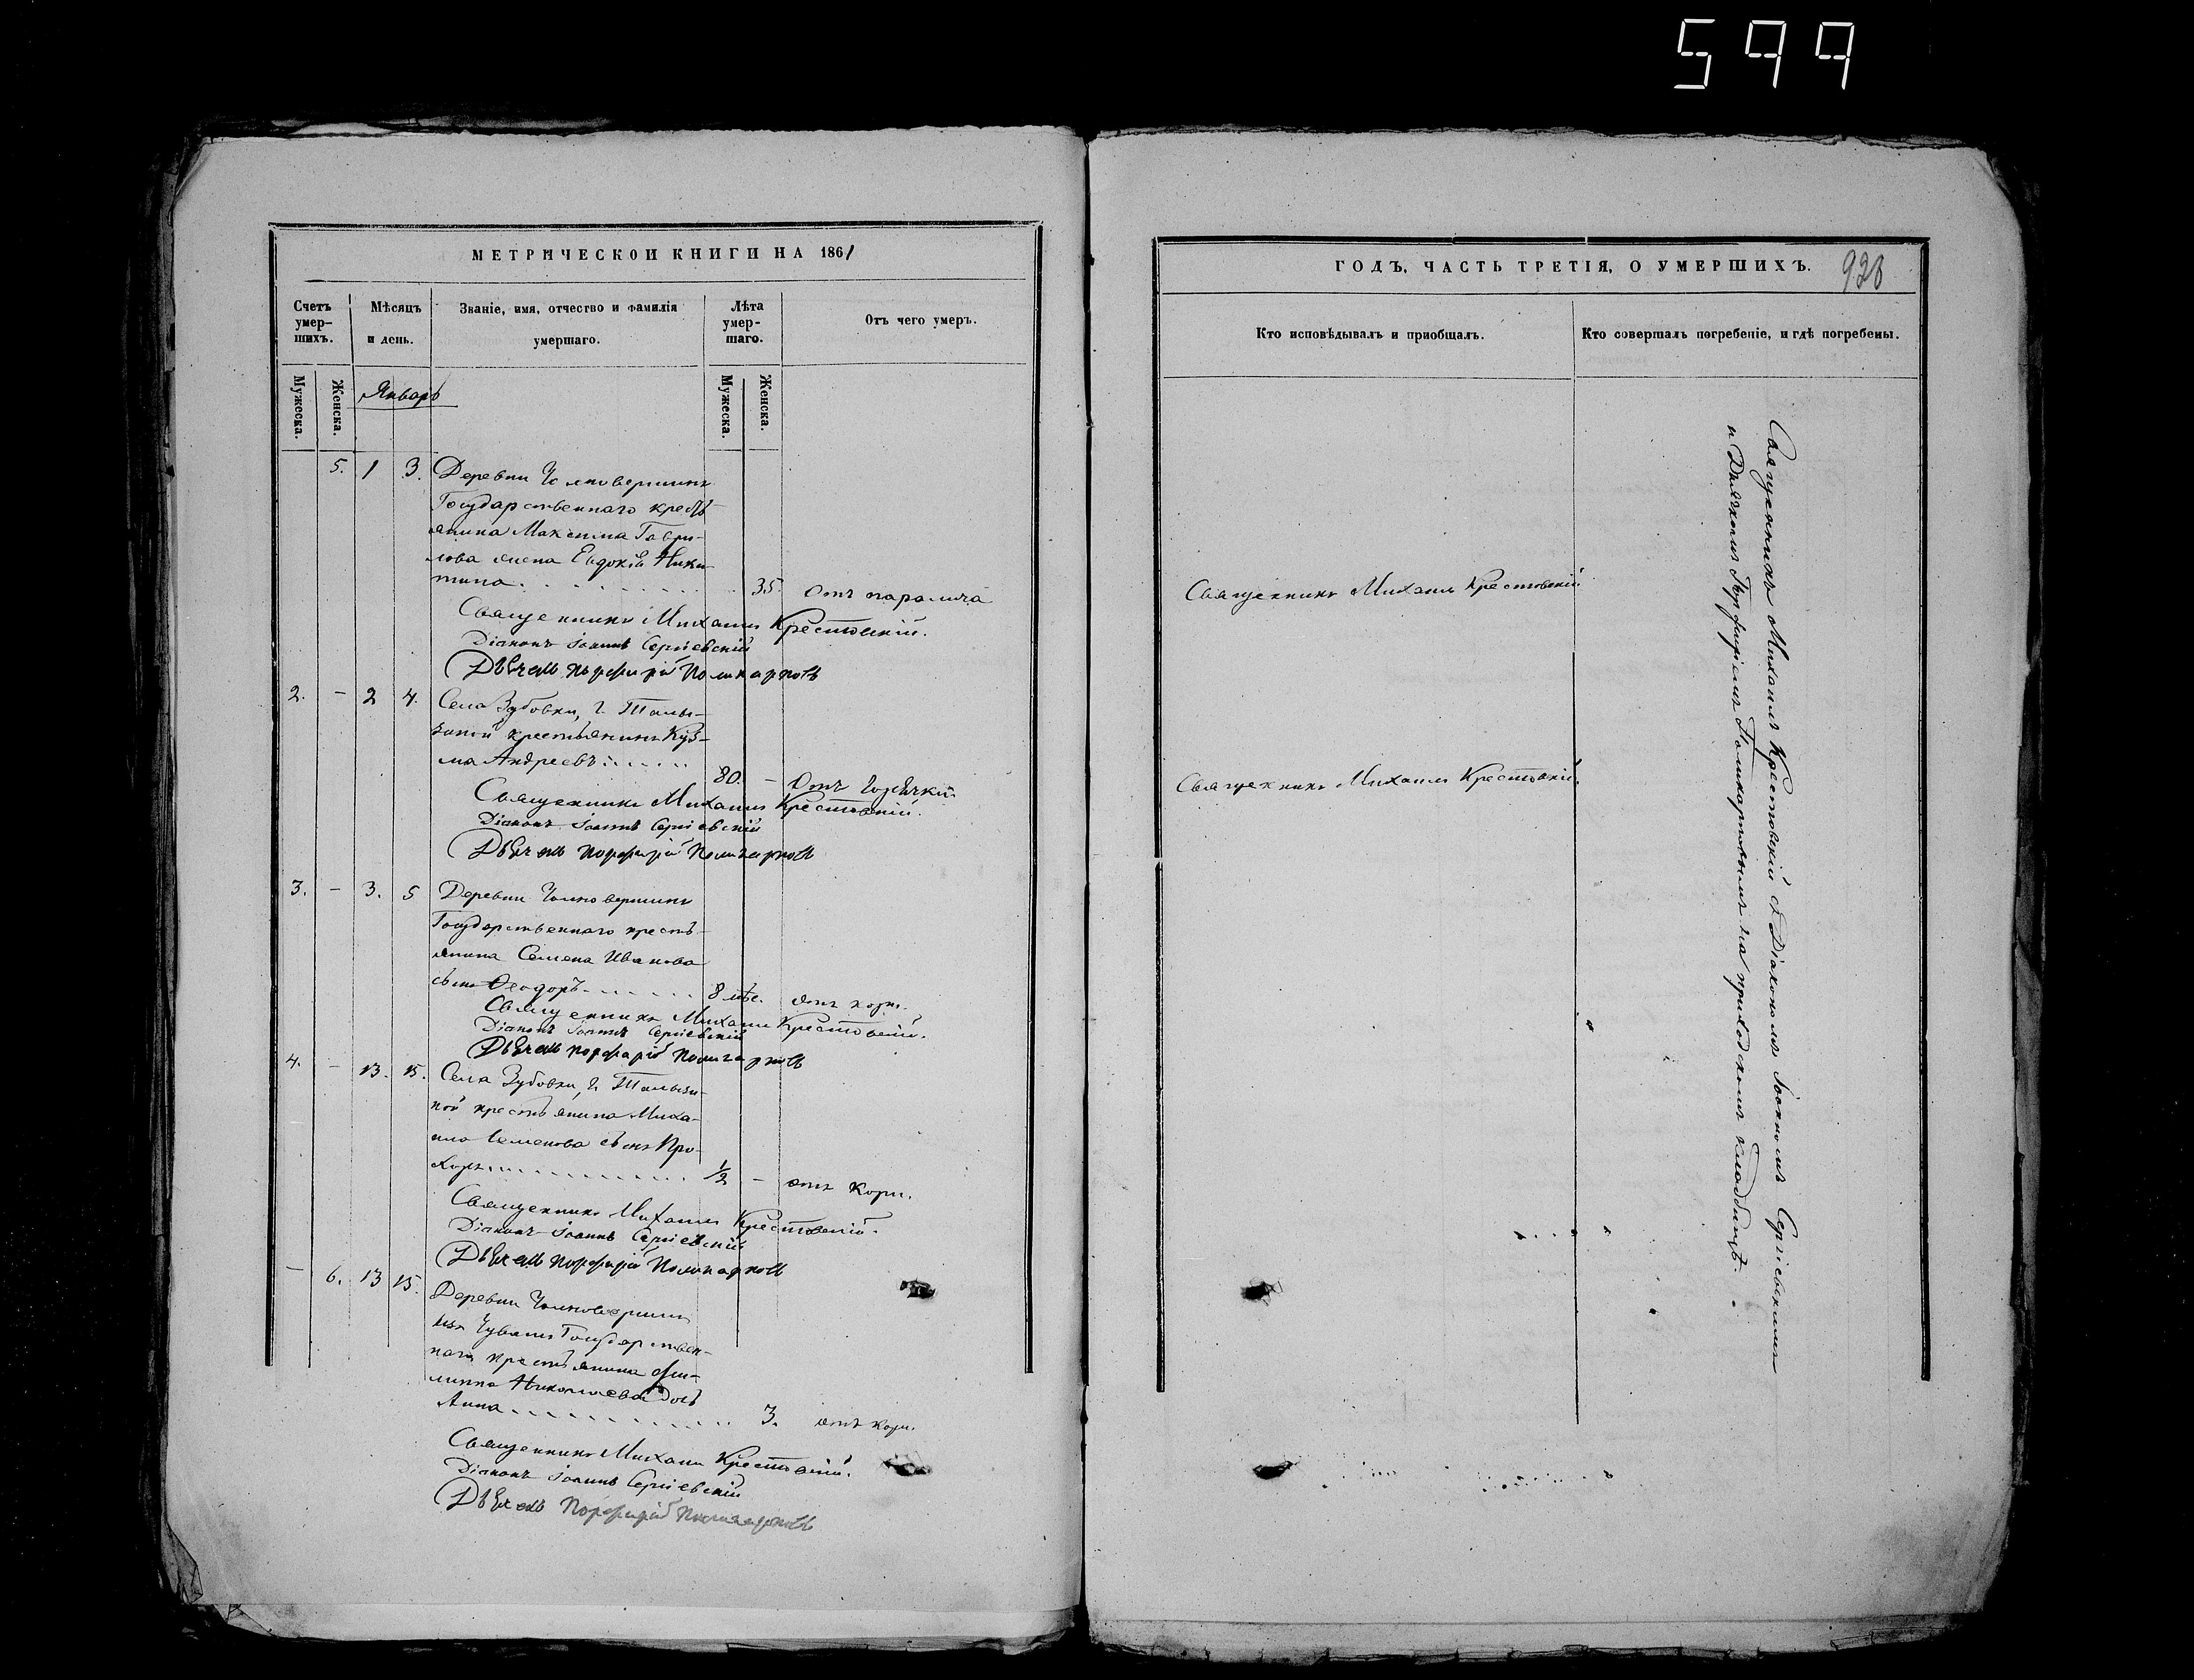 599
МЕТРИЧЕСКОЙ КНИГИ НА 1861
Счетъ умер-шихъ.
Мѣсяцъ и день.
Званіе, имя, отчество и фамилія умершаго.
Лѣта умер-шаго.
Отъ чего умеръ.
Мужеска.
Женска.
Январь
Мужеска.
Женска.
5. 1 3. Деревни Чолновершинъ
Государственнаго кресть-
янина Максима Гаври-
лова жена Евдокія Ники-
тина. 35. отъ паралича
Священникъ Михаилъ Крестовскій.
Діаконъ Іоаннъ Сергіевскій
Дьячекъ Порфирій Поликарповъ
2. – 2 4. Села Зубовки, Г. Талы-
зиной крестьянинъ Кузь-
ма Андреевъ 80. – отъ горячки
Священникъ Михаилъ Крестовскій.
Діаконъ Іоаннъ Сергіевскій
Дьячекъ Порфирій Поликарповъ
3. – 3. 5 Деревни Чолновершинъ
Государственнаго кресть-
янина Семена Иванова
сынъ Феодоръ 8 мѣс. отъ кори.
Священникъ Михаилъ Крестовскій.
Діаконъ Іоаннъ Сергіевскій
Дьячекъ Порфирій Поликарповъ
4. – 13. 15. Села Зубовки, Г. Талызи-
ной крестьянина Миха-
ила Семенова сынъ Про-
хоръ 1/2 – отъ кори.
Священникъ Михаилъ Крестовскій.
Діаконъ Іоаннъ Сергіевскій
Дьячекъ Порфирій Поликарповъ
– 6. 13 15. Деревни Чолновершинъ
изъ Чувашъ Государствен-
наго крестьянина Фи-
липпа Николаева дочь
Анна 3. отъ кори.
Священникъ Михаилъ Крестовскій.
Діаконъ Іоаннъ Сергіевскій
Дьячекъ Порфирій Поликарповъ
ГОДЪ, ЧАСТЬ ТРЕТІЯ, О УМЕРШИХЪ.
928
Кто исповѣдывалъ и пріобщалъ.
Кто совершалъ погребеніе, и гдѣ погребены.
Священникъ Михаилъ Крестовскій
Священникъ Михаилъ Крестовскій.
Священникъ Михаилъ Крестовскій съ Діакономъ Іоанномъ Сергіевскимъ
и Дьячкомъ Порфиріемъ Поликарповымъ на приходскомъ кладбищѣ.